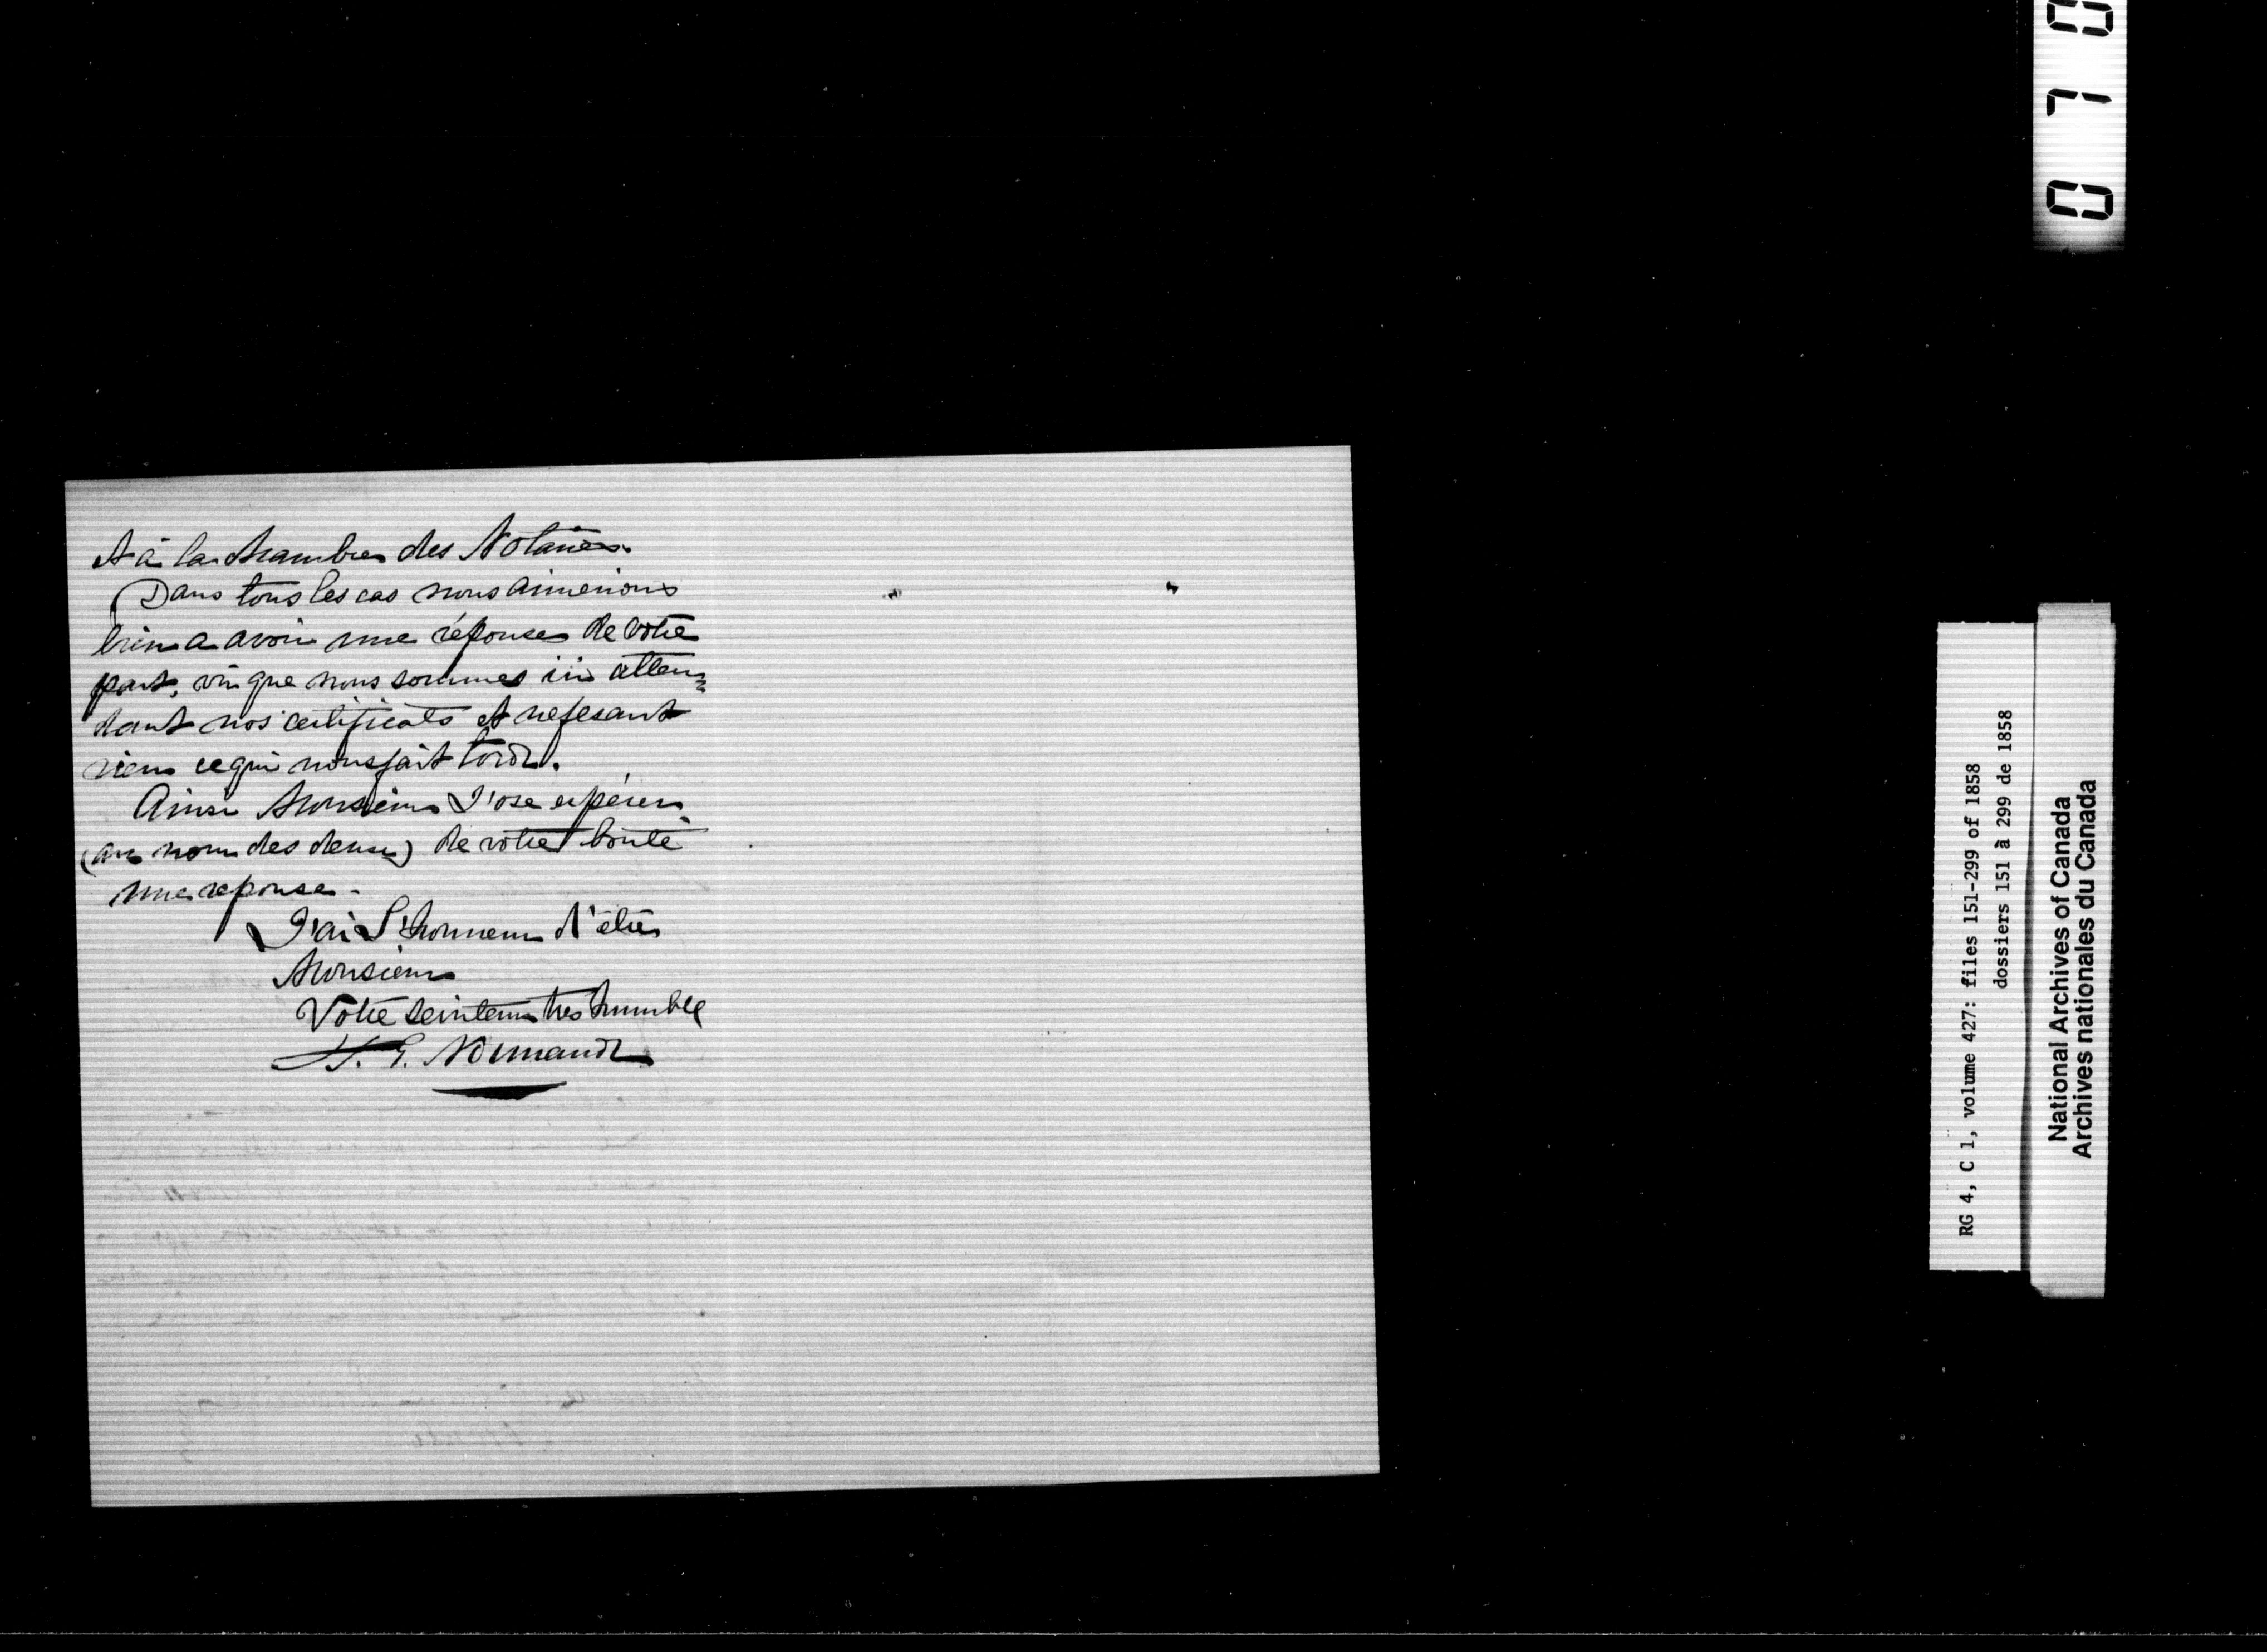 et à la chambre des Notaires.
Dans tous les cas nous aimerions
bien a avoir une réponse de votre
part, vû que nous sommes ici atten=
dant nos certificats et ne fesant
rien ce qui nous fait tord.
Ainsi Monsieur J'ose espérer
(au nom des deux) de votre bonté
une reponse.
J'ai L'honneur d'être
Monsieur
Votre serviteur tres humble
E. Normand
0 7 0
RG 4, C 1, volume 427: files 151-299 of 1858
dossiers 151 à 299 de 1858
National Archives of Canada
Archives nationales du Canada